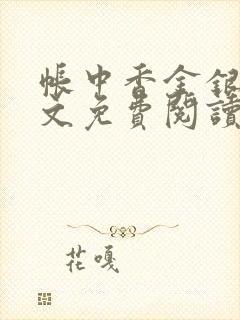 帳中香金銀
文免費閱讀
花嘎